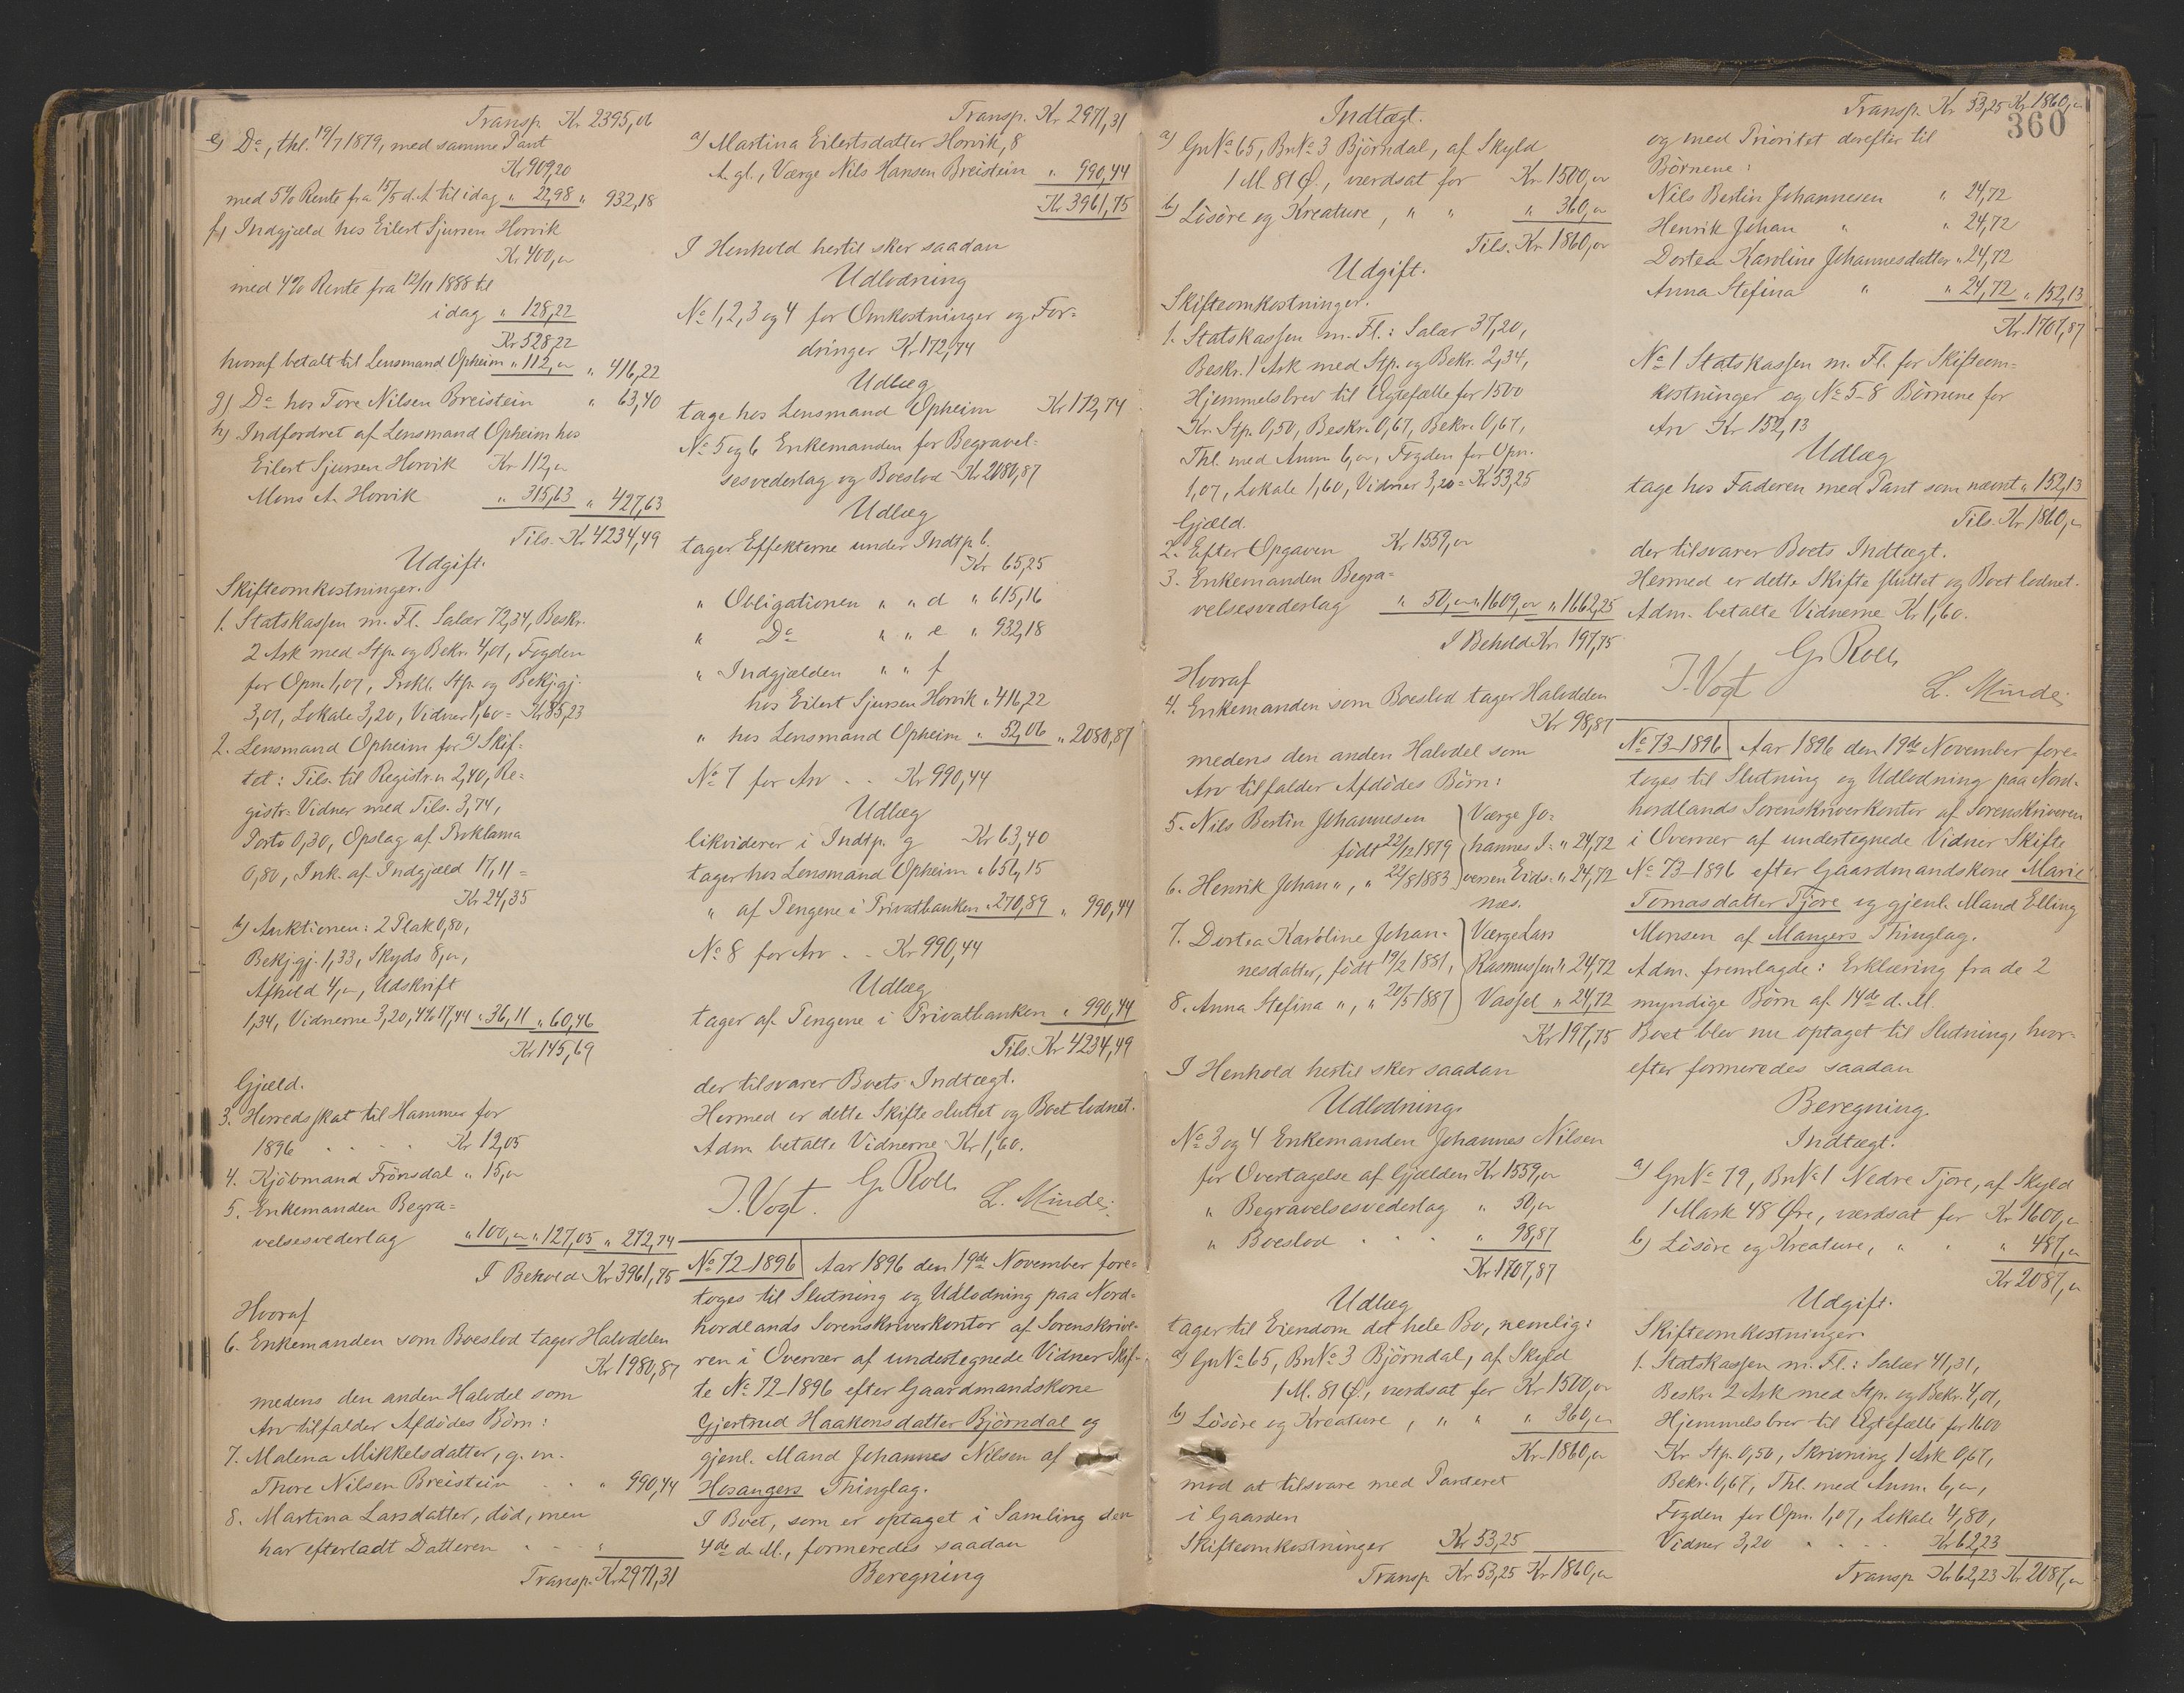 Transp. Kr 2395,06
e) Do, thl. 19/7 1879, med samme Pant
Kr 909,20
med 5% Rente fra 15/5 d. A. til idag " 22,98 " 932,18
f) Indgjæld hos Eilert Sjursen Horvik
Kr 400,"
med 4% Rente fra 12/11 1888 til
idag " 128,22
Kr 528,22
hvoraf betalt til Lensmand Opheim " 112,"  " 416,22
g) Do hos Tore Nilsen Breistein " 63,40
h) Indfordret af Lensmand Opheim hos
Eilert Sjursen Horvik Kr 112,"
Mons A. Horvik " 315,63 " 427,63
Tils. Kr 4234,49
Udgift.
Skifteomkostninger.
1. Statskassen m. Fl. Salær 72,34, Beskr.
2 Ark med Stp. og Bekr. 4,01, Fogden
for Opn. 1,07, Prokl. Stp. og Bekj.gj.
3,01, Lokale 3,20, Vidner 1,60 = Kr 85,23
2. Lensmand Opheim for a) Skif-
tet: Tils. til Registr.n 2,40, Re-
gistr. Vidner med Tils. 3,74,
Porto 0,30, Opslag af Proklama
0,80, Ink. af Indgjæld 17,11 =
Kr 24,35
b) Auktionen: 2 Plak. 0,80,
Bekj.gj. 1,33, Skyds 8,",
Afhold 4,", Udskrift
1,34, Vidnerne 3,20, 4% 17,44 " 36,11 " 60,46
Kr 145,69
Gjæld.
3. Herredsskat til Hammer for
1896 . . . Kr 12,05
4. Kjöbmand Frönsdal " 15,"
5. Enkemanden Begra-
velsesvederlag " 100," " 127,05 " 272,74
I Behold Kr 3961,75
Hvoraf
6. Enkemanden som Boeslod tager Halvdelen
Kr 1980,87
medens den anden Halvdel som
Arv tilfalder Afdödes Börn:
7. Malena Mikkelsdatter, g. m.
Thore Nilsen Breistein . . " 990,44
8. Martina Larsdatter, död, men
har efterladt Datteren . . "
Transp. Kr 2971,31
Transp. Kr 2971,31
a) Martina Eilertsdatter Horvik, 8
A. gl., Værge Nils Hansen Breistein " 990,44
Kr 3961,75
I Henhold hertil sker saadan
Udlodning
No 1, 2, 3 og 4 for Omkostninger og For-
dringer Kr 172,74
Udlæg
tage hos Lensmand Opheim Kr 172,74
No 5 og 6 Enkemanden for Begravel-
sesvederlag og Boeslod Kr 2080,87
Udlæg
tager Effekterne under Indtp. b.
Kr 65,25
" Obligationen " " d " 615,16
" Do " " e " 932,18
" Indgjælden " " f
hos Eilert Sjursen Horvik " 416,22
" hos Lensmand Opheim " 52,06 " 2080,87
No 7 for Arv . . Kr 990,44
Udlæg
likviderer i Indtp. g Kr 63,40
tager hos Lensmand Opheim " 656,15
" af Pengene i Privatbanken " 270,89 " 990,44
No 8 for Arv . . Kr 990,44
Udlæg
tager af Pengene i Privatbanken " 990,44
Tils. Kr 4234,49
der tilsvarer Boets Indtægt.
Hermed er dette Skifte sluttet og Boet lodnet.
Adm. betalte Vidnerne Kr 1,60.
G. Roll.
J. Vogt. L. Minde.
No 72-1896 Aar 1896 den 19de November fore-
toges til Slutning og Udlodning paa Nord-
hordlands Sorenskriverkontor af Sorenskrive-
ren i Overvær af undertegnede Vidner Skif-
te No 72-1896 efter Gaardmandskone
Gjertrud Haakonsdatter Björndal og
gjenl. Mand Johannes Nilsen af
Hosangers Thinglag.
I Boet, som er optaget i Samling den
4de d. M., formeredes saadan
Beregning
Indtægt.
a) GnNo 65, BnNo 3 Björndal, af Skyld
1 M. 81 Ø., værdsat for Kr. 1500,"
b) Lösöre og Kreature, " " " 360,"
Tils. Kr 1860,"
Udgift.
Skifteomkostninger.
1. Statskassen m. Fl.: Salær 37,20,
Beskr. 1 Ark med Stp. og Bekr. 2,34,
Hjemmelsbrev til Ægtefælle for 1500
Kr. Stp. 0,50, Beskr. 0,67, Bekr. 0,67,
Thl. med Anm. 6,", Fogden for Opn.
1,07, Lokale 1,60, Vidner 3,20 = Kr 53,25
Gjæld.
2. Efter Opgaven Kr 1559,"
3. Enkemanden Begra-
velsesvederlag " 50," " 1609," " 1662,25
I Behold Kr. 197,75
Hvoraf
4. Enkemanden som Boeslod tager Halvdelen
Kr 98,87
medens den anden Halvdel som
Arv tilfalder Afdödes Börn:
5. Nils Bertin Johannesen Værge Jo-
födt 22/12 1879 hannes I- " 24,72
6. Henrik Johan ", " 22/8 1883 versen Eids- " 24,72
næs.
7. Dortea Karoline Johan- Værge Lars
nesdatter, födt 19/2 1881, Rasmussen " 24,72
8. Anna Stefina ", " 20/5 1887 Vassel " 24,72
Kr 197,75
I Henhold hertil sker saadan
Udlodning.
No 3 og 4 Enkemanden Johannes Nilsen
for Overtagelse af Gjælden Kr 1559,"
" Begravelsesvederlag " 50,"
" Boeslod . . . " 98,87
Kr 1707,87
Udlæg
tager til Eiendom det hele Bo, nemlig:
a) GnNo 65, BnNo 3 Björndal, af Skyld
1 M. 81 Ø., værdsat for Kr 1500,"
b) Lösöre og Kreature, " " " 360,"
Kr. 1860,"
mod at tilsvare med Panteret
i Gaarden
Skifteomkostninger Kr 53,25
Transp. Kr 53,25 Kr 1860,"
Transp. Kr 53,25 Kr 1860,"
360
og med Prioritet derefter til
Börnene:
Nils Bertin Johannesen " 24,72
Henrik Johan " " 24,72
Dortea Karoline Johannesdatter " 24,72
Anna Stefina " " 24,72 " 152,13
Kr. 1707,87
No 1 Statskassen m. Fl. for Skifteom-
kostninger og No 5-8 Börnene for
Arv Kr 152,13
Udlæg
tage hos Faderen med Pant som nævnt " 152,13
Tils. Kr 1860,"
der tilsvarer Boets Indtægt.
Hermed er dette Skifte sluttet og Boet lodnet.
Adm. betalte Vidnerne Kr 1,60.
G. Roll.
J. Vogt L. Minde.
No 73-1896 Aar 1896 den 19de November fore-
toges til Slutning og Udlodning paa Nord-
hordlands Sorenskriverkontor af Sorenskriveren
i Overvær af undertegnede Vidner Skifte
No 73-1896 efter Gaardmandskone Marie
Tomasdatter Tjore og gjenl. Mand Elling
Monsen af Mangers Thinglag.
Adm. fremlagde: Erklæring fra de 2
myndige Börn af 14de d. M.
Boet blev nu optaget til Slutning, hvor-
efter formeredes saadan
Beregning.
Indtægt.
a) GnNo 79, BnNo 1 Nedre Tjore, af Skyld
1 Mark 48 Øre, værdsat for Kr 1600,"
b) Lösöre og Kreature, " " " 487,"
Kr 2087,"
Udgift.
Skifteomkostninger.
1. Statskassen m. Fl.: Salær 41,31,
Beskr. 2 Ark med Stp. og Bekr. 4,01,
Hjemmelsbrev til Ægtefælle for 1600
Kr Stp. 0,50, Skrivning 1 Ark 0,67,
Bekr. 0,67, Thl. med Anm. 6,",
Fogden for Opn. 1,07, Lokale 4,80,
Vidner 3,20 . . . Kr 62,23
Transp. Kr 62,23 Kr 2087,"